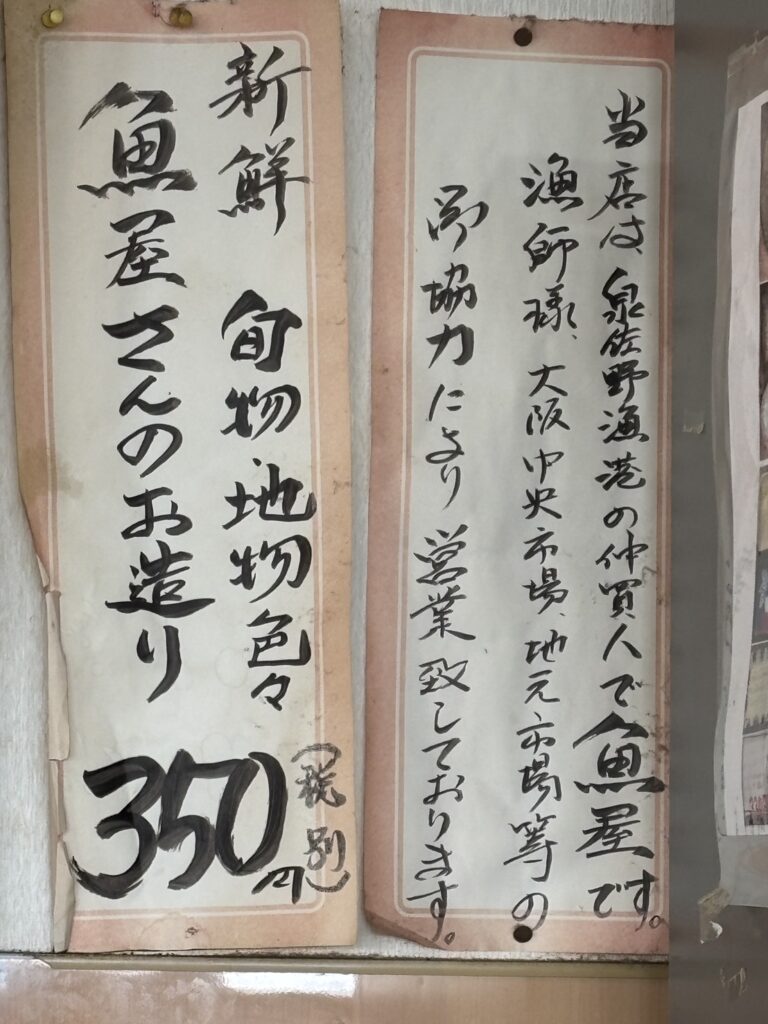 当店は、泉佐野漁港の仲買人で魚屋です。
漁師様、大阪中央市場、地元市場等の
御協力により営業致しております。
新鮮 旬物・地物色々
魚屋さんのお造り
350円
(税別)